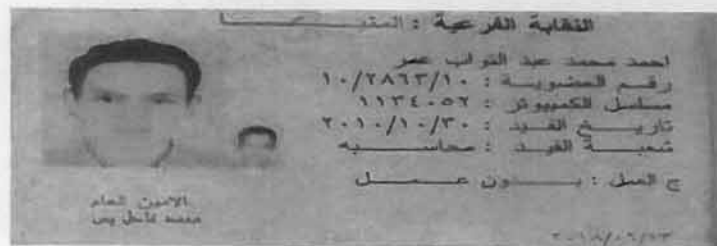 النقابة الفرعية : المنيا
احمد محمد عبد التواب عمر
رقم العضوية : ١٠/٢٨٦٣/١٠
مسلسل الكمبيوتر : ١١٣٤٠٥٢
تاريخ القيد : ٢٠١٠/١٠/٣٠
شعبة القيد : محاسبه
ج العمل : بدون عمل
الامين العام
محمد